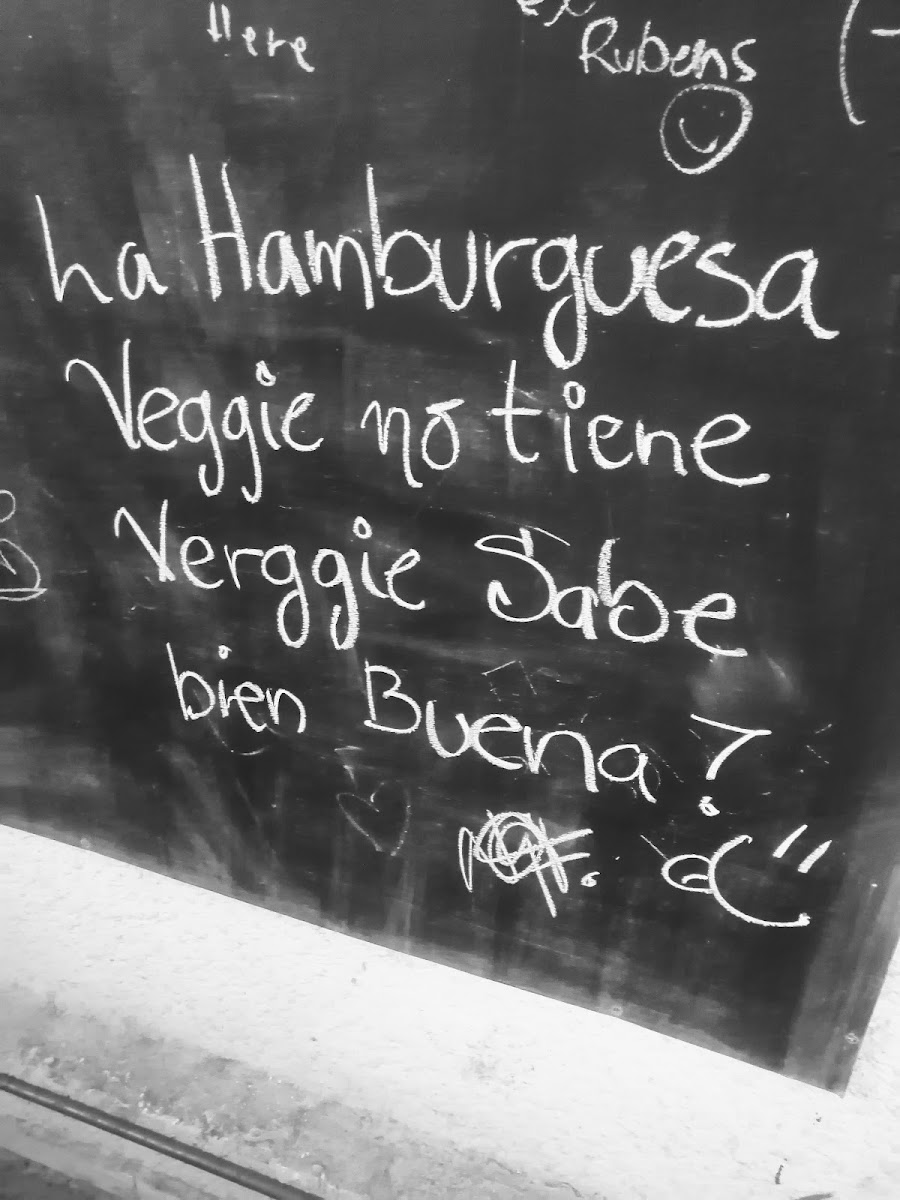 Here
Rubens
La Hamburguesa
Veggie no tiene
Verggie Sabe
bien Buena?